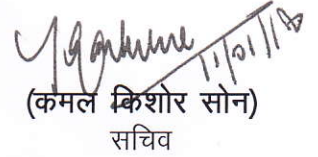 11/01/18
(कमल किशोर सोन)
सचिव